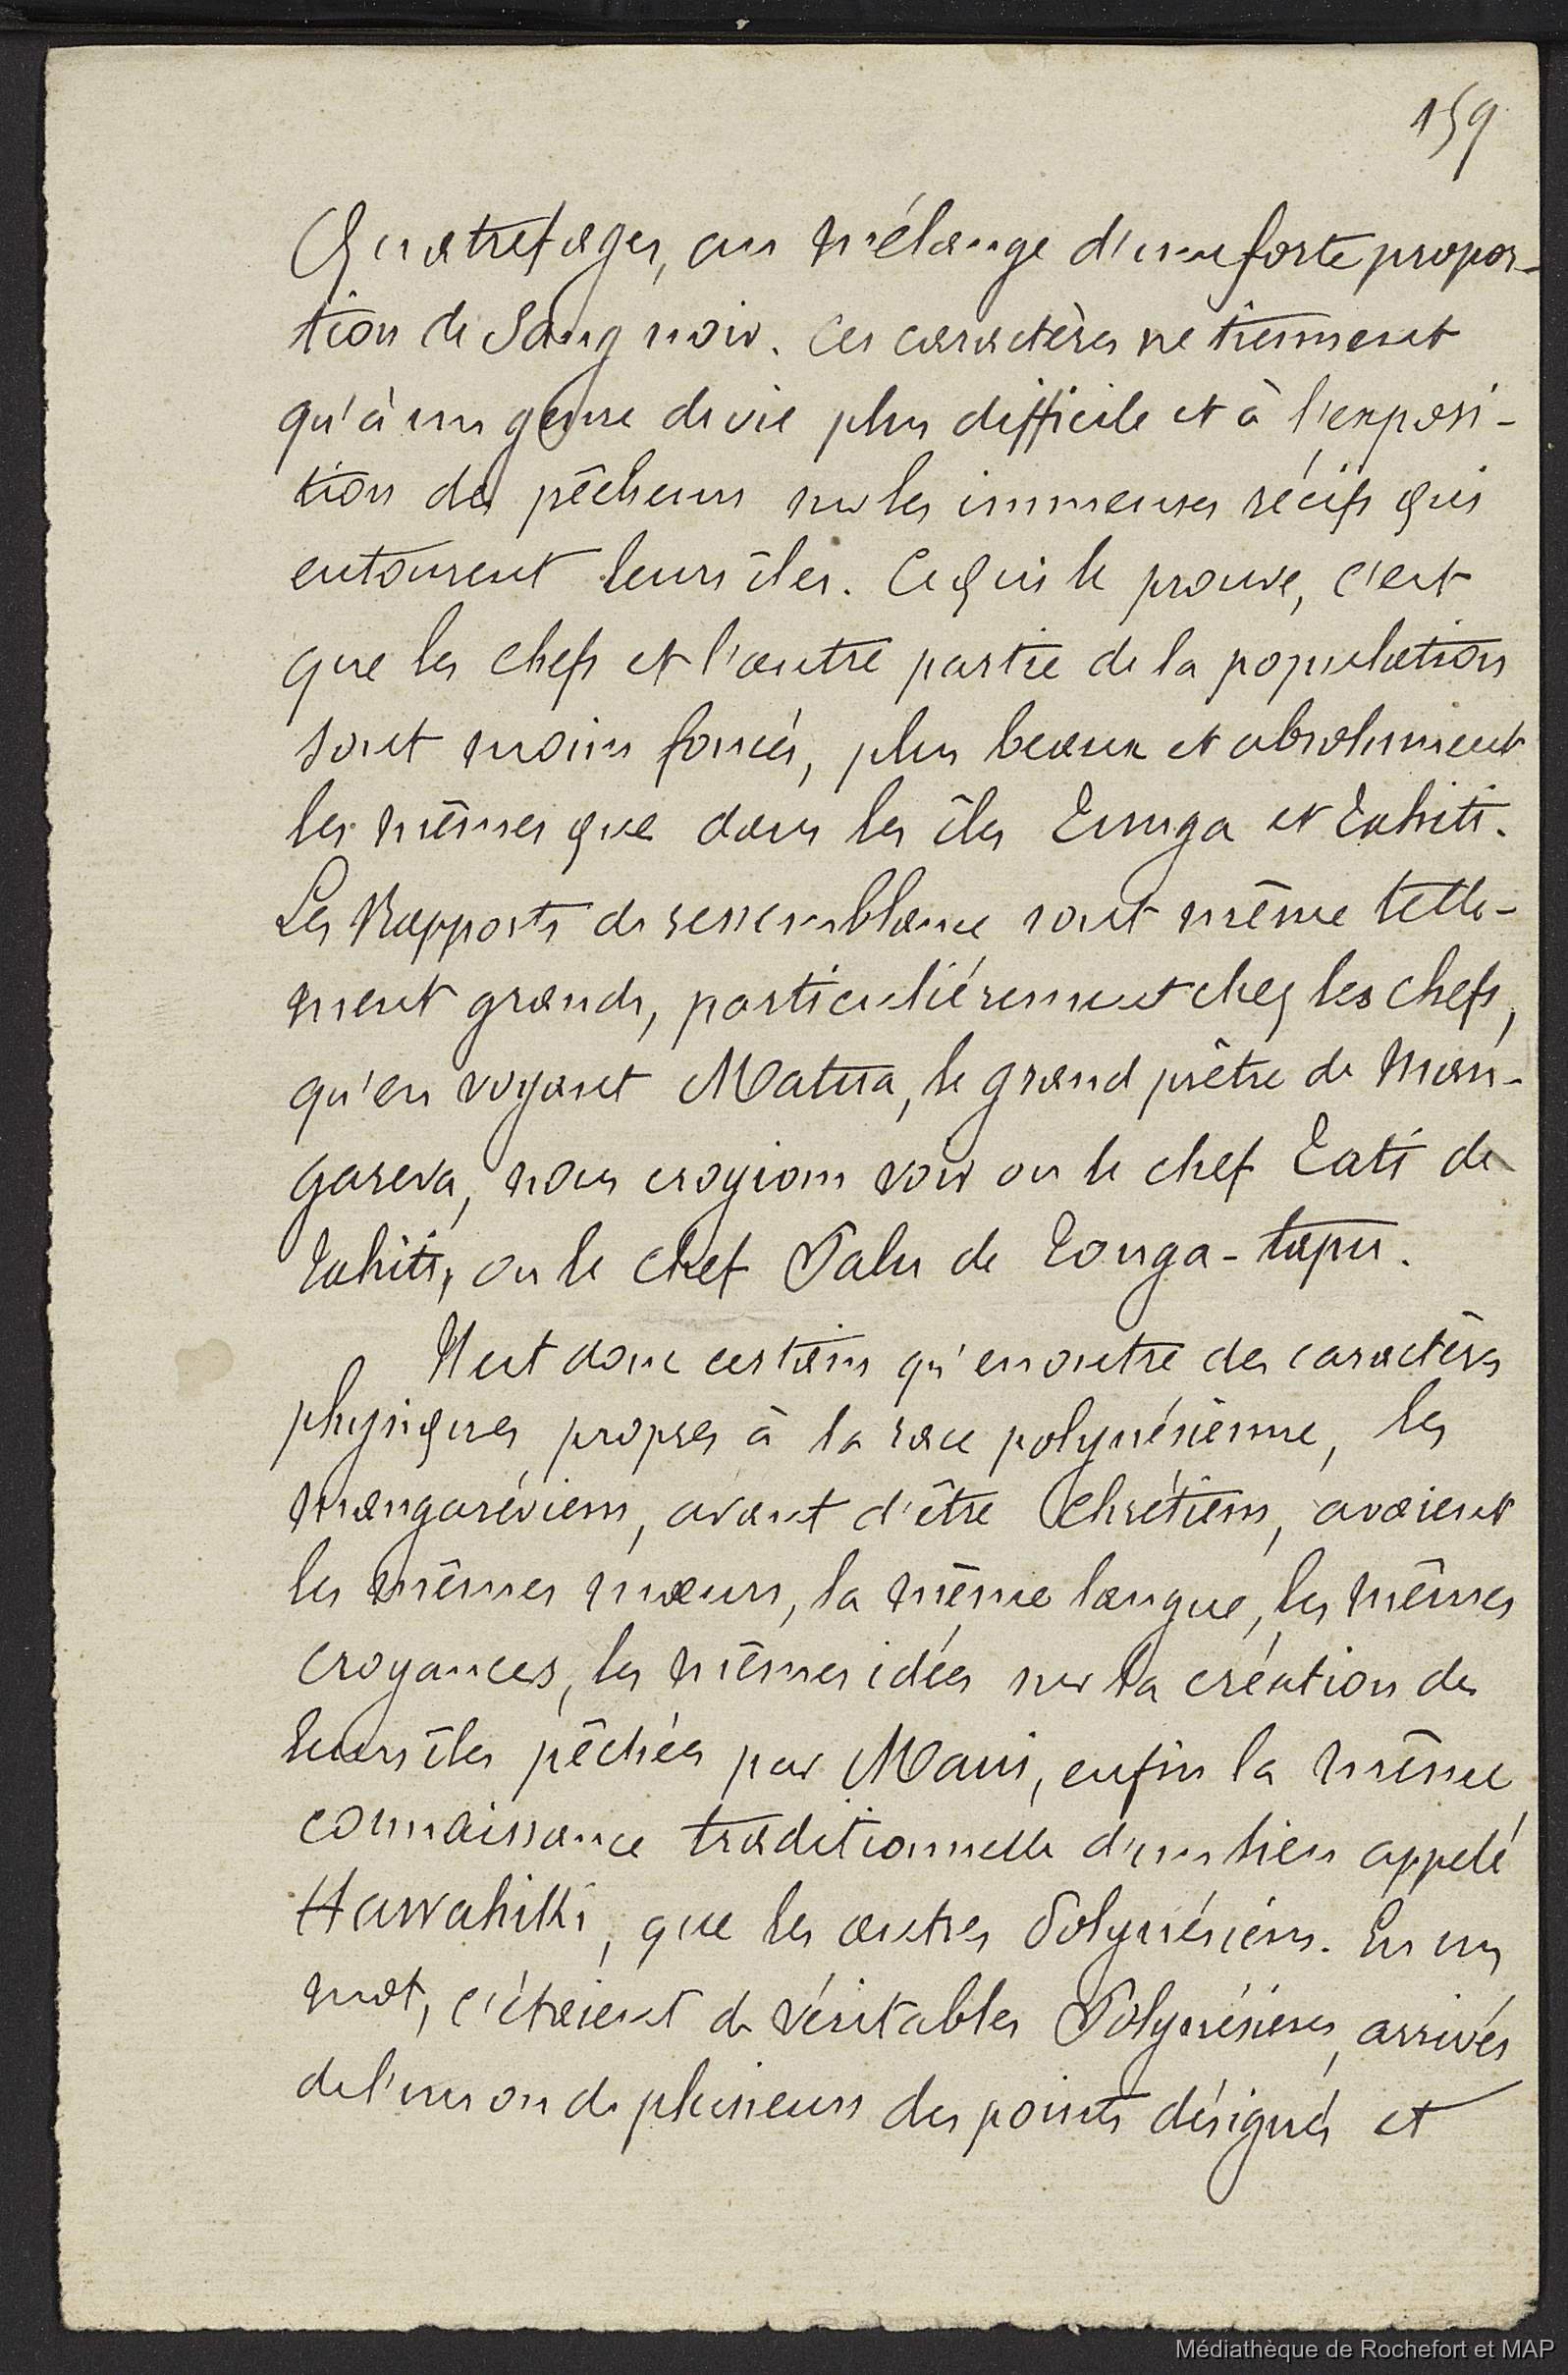 159
Quatrefages, au mélange d'une forte propor-
tion de Sang noir. Ces caractères ne tiennent
qu'à un genre de vie plus difficile et à l'exposi-
tion des pêcheurs sur les immenses récifs qui
entourent leurs îles. Ce qui le prouve, c'est
que les chefs et l'autre partie de la population
sont moins foncés, plus beaux et absolument
les mêmes que dans les îles Tunga et Tahiti.
Les Rapports de ressemblance sont même telle-
ment grands, particulièrement chez les chefs,
qu'en voyant Matua, le grand prêtre de Man-
gareva, nous croyions voir ou le chef Tati de
Tahiti, ou le chef Palu de Tonga-tapu.
Il est donc certain qu'en outre des caractères
physiques propres à la race polynésienne, les
mangaréviens, avant d'être Chrétiens, avaient
les mêmes mœurs, la même langue, les mêmes
croyances, les mêmes idées sur la création de
leurs îles pêchées par Maui, enfin la même
connaissance traditionnelle d'un lieu appelé
Hawahiki, que les autres Polynésiens. En un
mot, c'étaient de véritables Polynésiens, arrivés
de l'un ou de plusieurs des points désignés et
Médiathèque de Rochefort et MAP